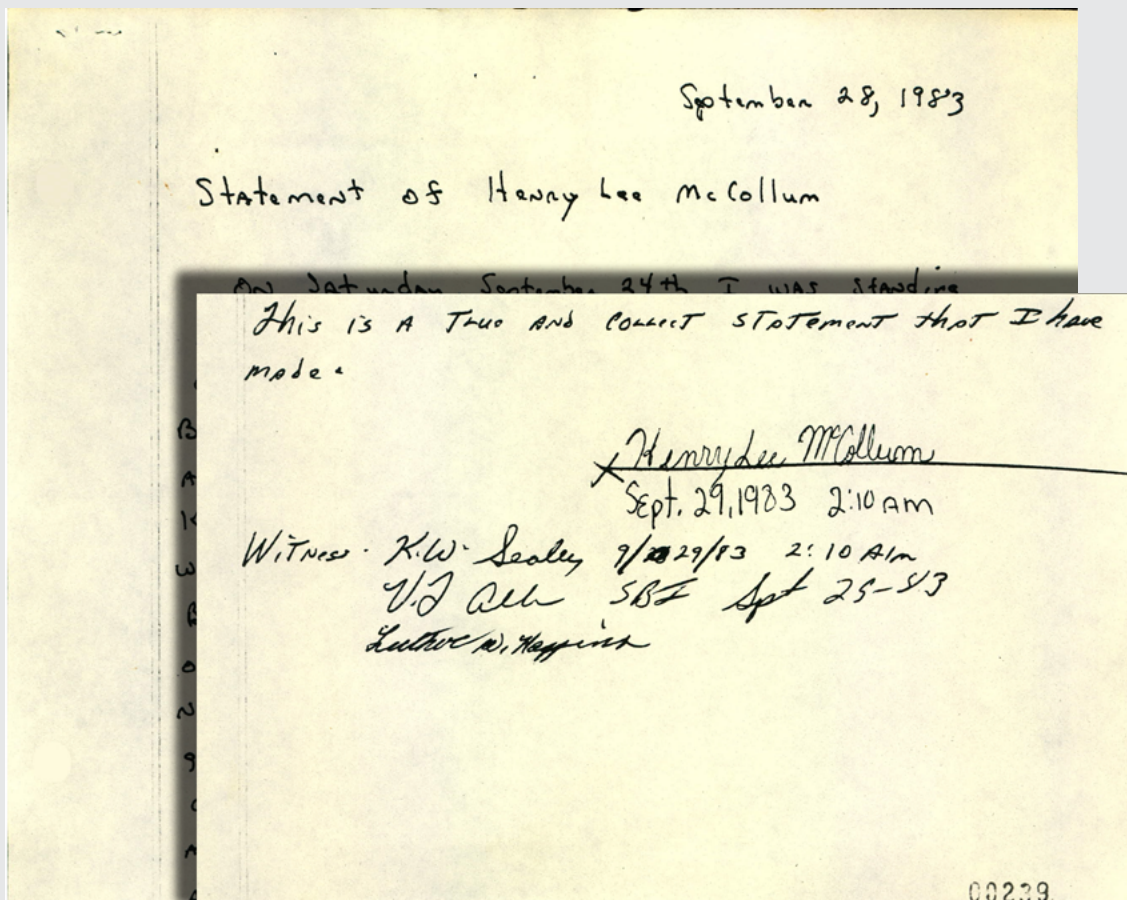 September 28, 1983
Statement of Henry Lee McCollum
On Saturday September 24th I was standing
This is A True AND CORRECT STATEMENT that I have
made.
X Henry Lee McCollum
Sept. 29, 1983 2:10 am
Witness. K.W. Sealey 9/29/83 2:10 AM
SBI Spt 29-83
00239